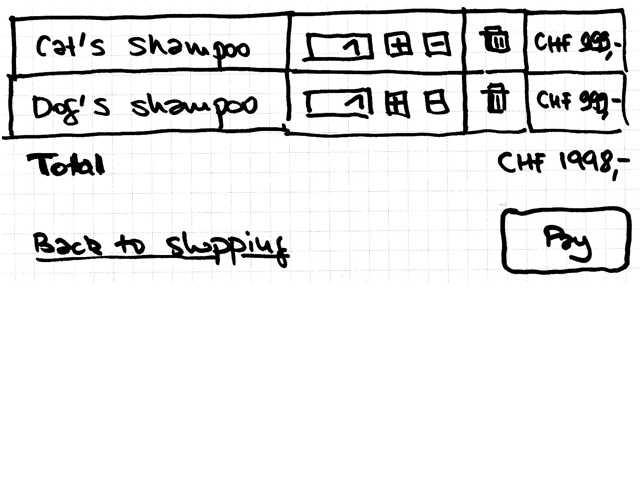 Cat's shampoo 1 + - CHF 999,-
Dog's shampoo 1 + - CHF 999,-
Total CHF 1998,-
Back to shopping Pay